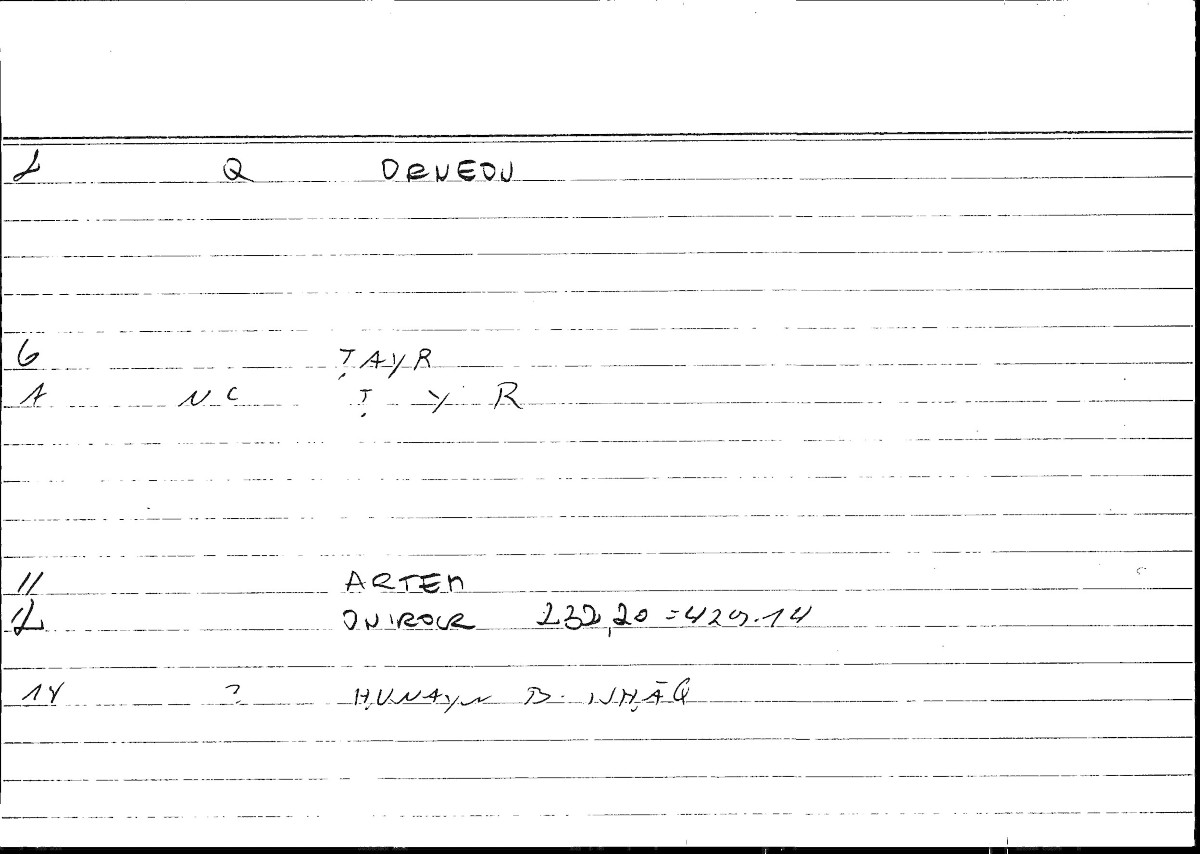 2 Q ORNEON
6 ṬAYR
7 NC Ṭ Y R
11 ARTEM
12 ONIROCR 232,20 = 429.14
14 ? ḤUNAYN B. ISḤĀQ